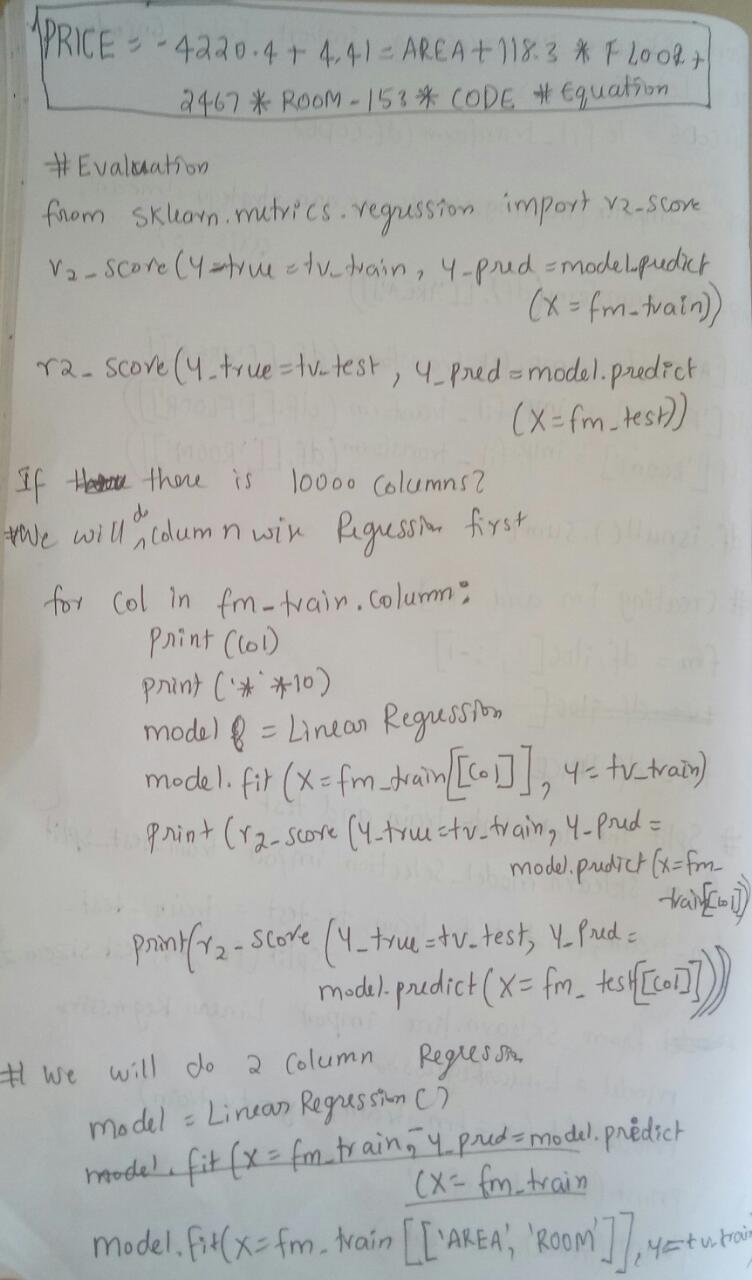 PRICE = - 4220.4 + 4.41 = AREA + 118.3 * FLOOR +
2467 * ROOM - 153 * CODE # Equation
# Evaluation
from sklearn.metrics.regression import r2-score
r2-score(y=true = tv-train, y-pred = model.predict
(x = fm-train))
r2-score(y-true = tv-test, y-pred = model.predict
(x = fm-test))
If there is 10000 columns?
# We will do column wise Regression first
for col in fm-train.column:
print (col)
print ('*' *10)
model = Linear Regression
model.fit (x = fm-train[[col]], y = tv-train)
print (r2-score (y-true = tv-train, y-pred =
model.predict (x = fm-
train[[col]])
print(r2-score (y-true = tv-test, y-pred =
model.predict (x = fm-test[[col]])))
# we will do 2 column Regression
model = Linear Regression ()
model.fit (x = fm-train, y-pred = model.predict
(x = fm-train
model.fit(x = fm-train [['AREA', 'ROOM']], y = tv-train